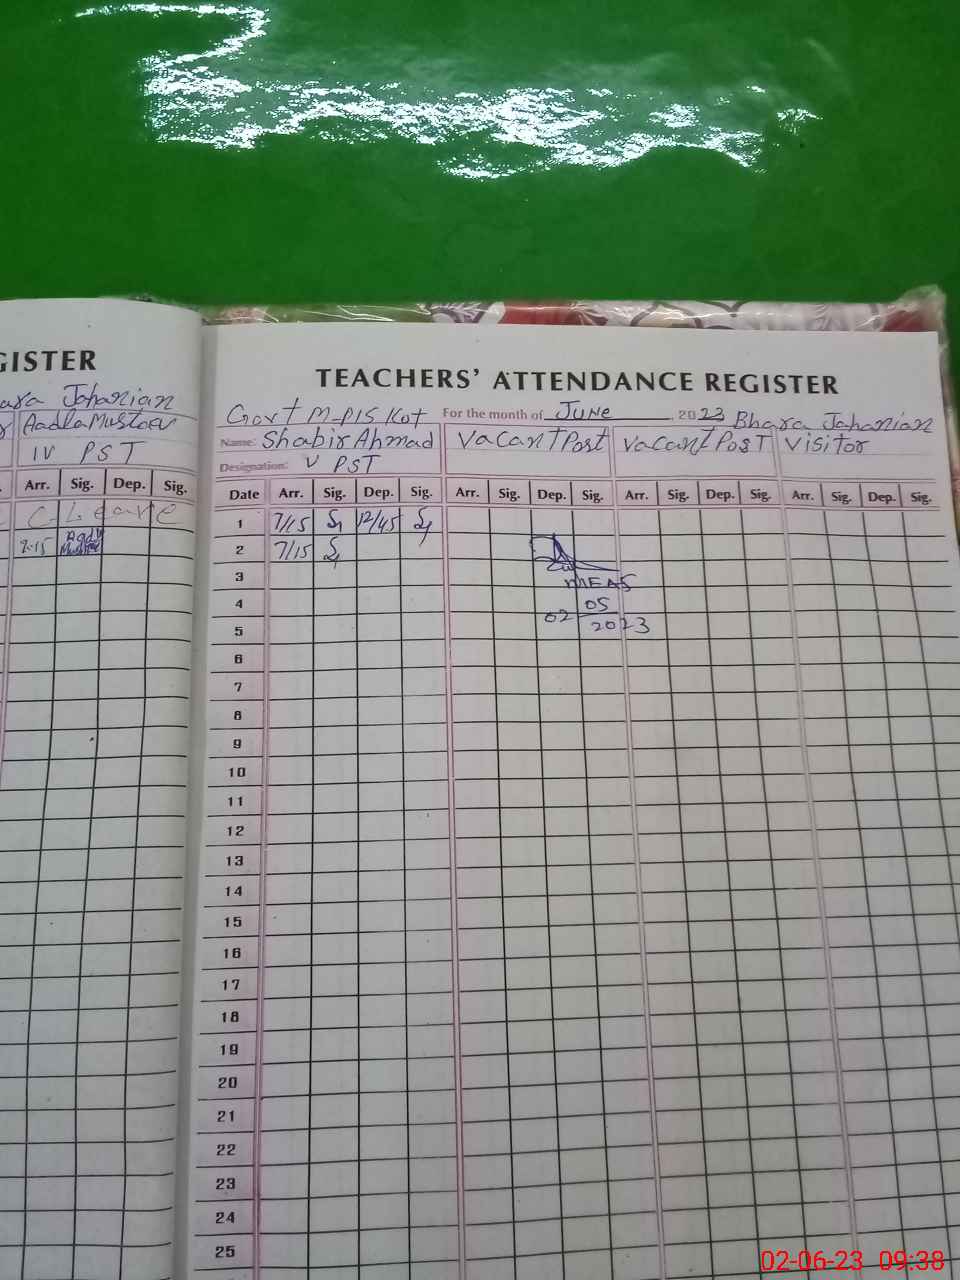 GISTER
ara Jahanian
IV PST
Arr. Sig. Dep. Sig.
C. Leave
7.15
TEACHERS' ATTENDANCE REGISTER
Govt M-P/S Kot For the month of June, 2023 Bhara Jahanian
Name: Shabir Ahmad Vacant Post Vacant Post Visitor
Designation: V PST
Date Arr. Sig. Dep. Sig. Arr. Sig. Dep. Sig. Arr. Sig. Dep. Sig. Arr. Sig. Dep. Sig.
1 7/15 12/45
2 7/15
3 MEA5
4 05
5 02 2023
6
7
8
9
10
11
12
13
14
15
16
17
18
19
20
21
22
23
24
25
02-06-23 09:38